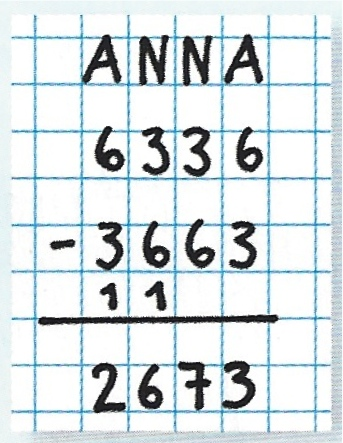 ANNA
6336
-3663
11
2673